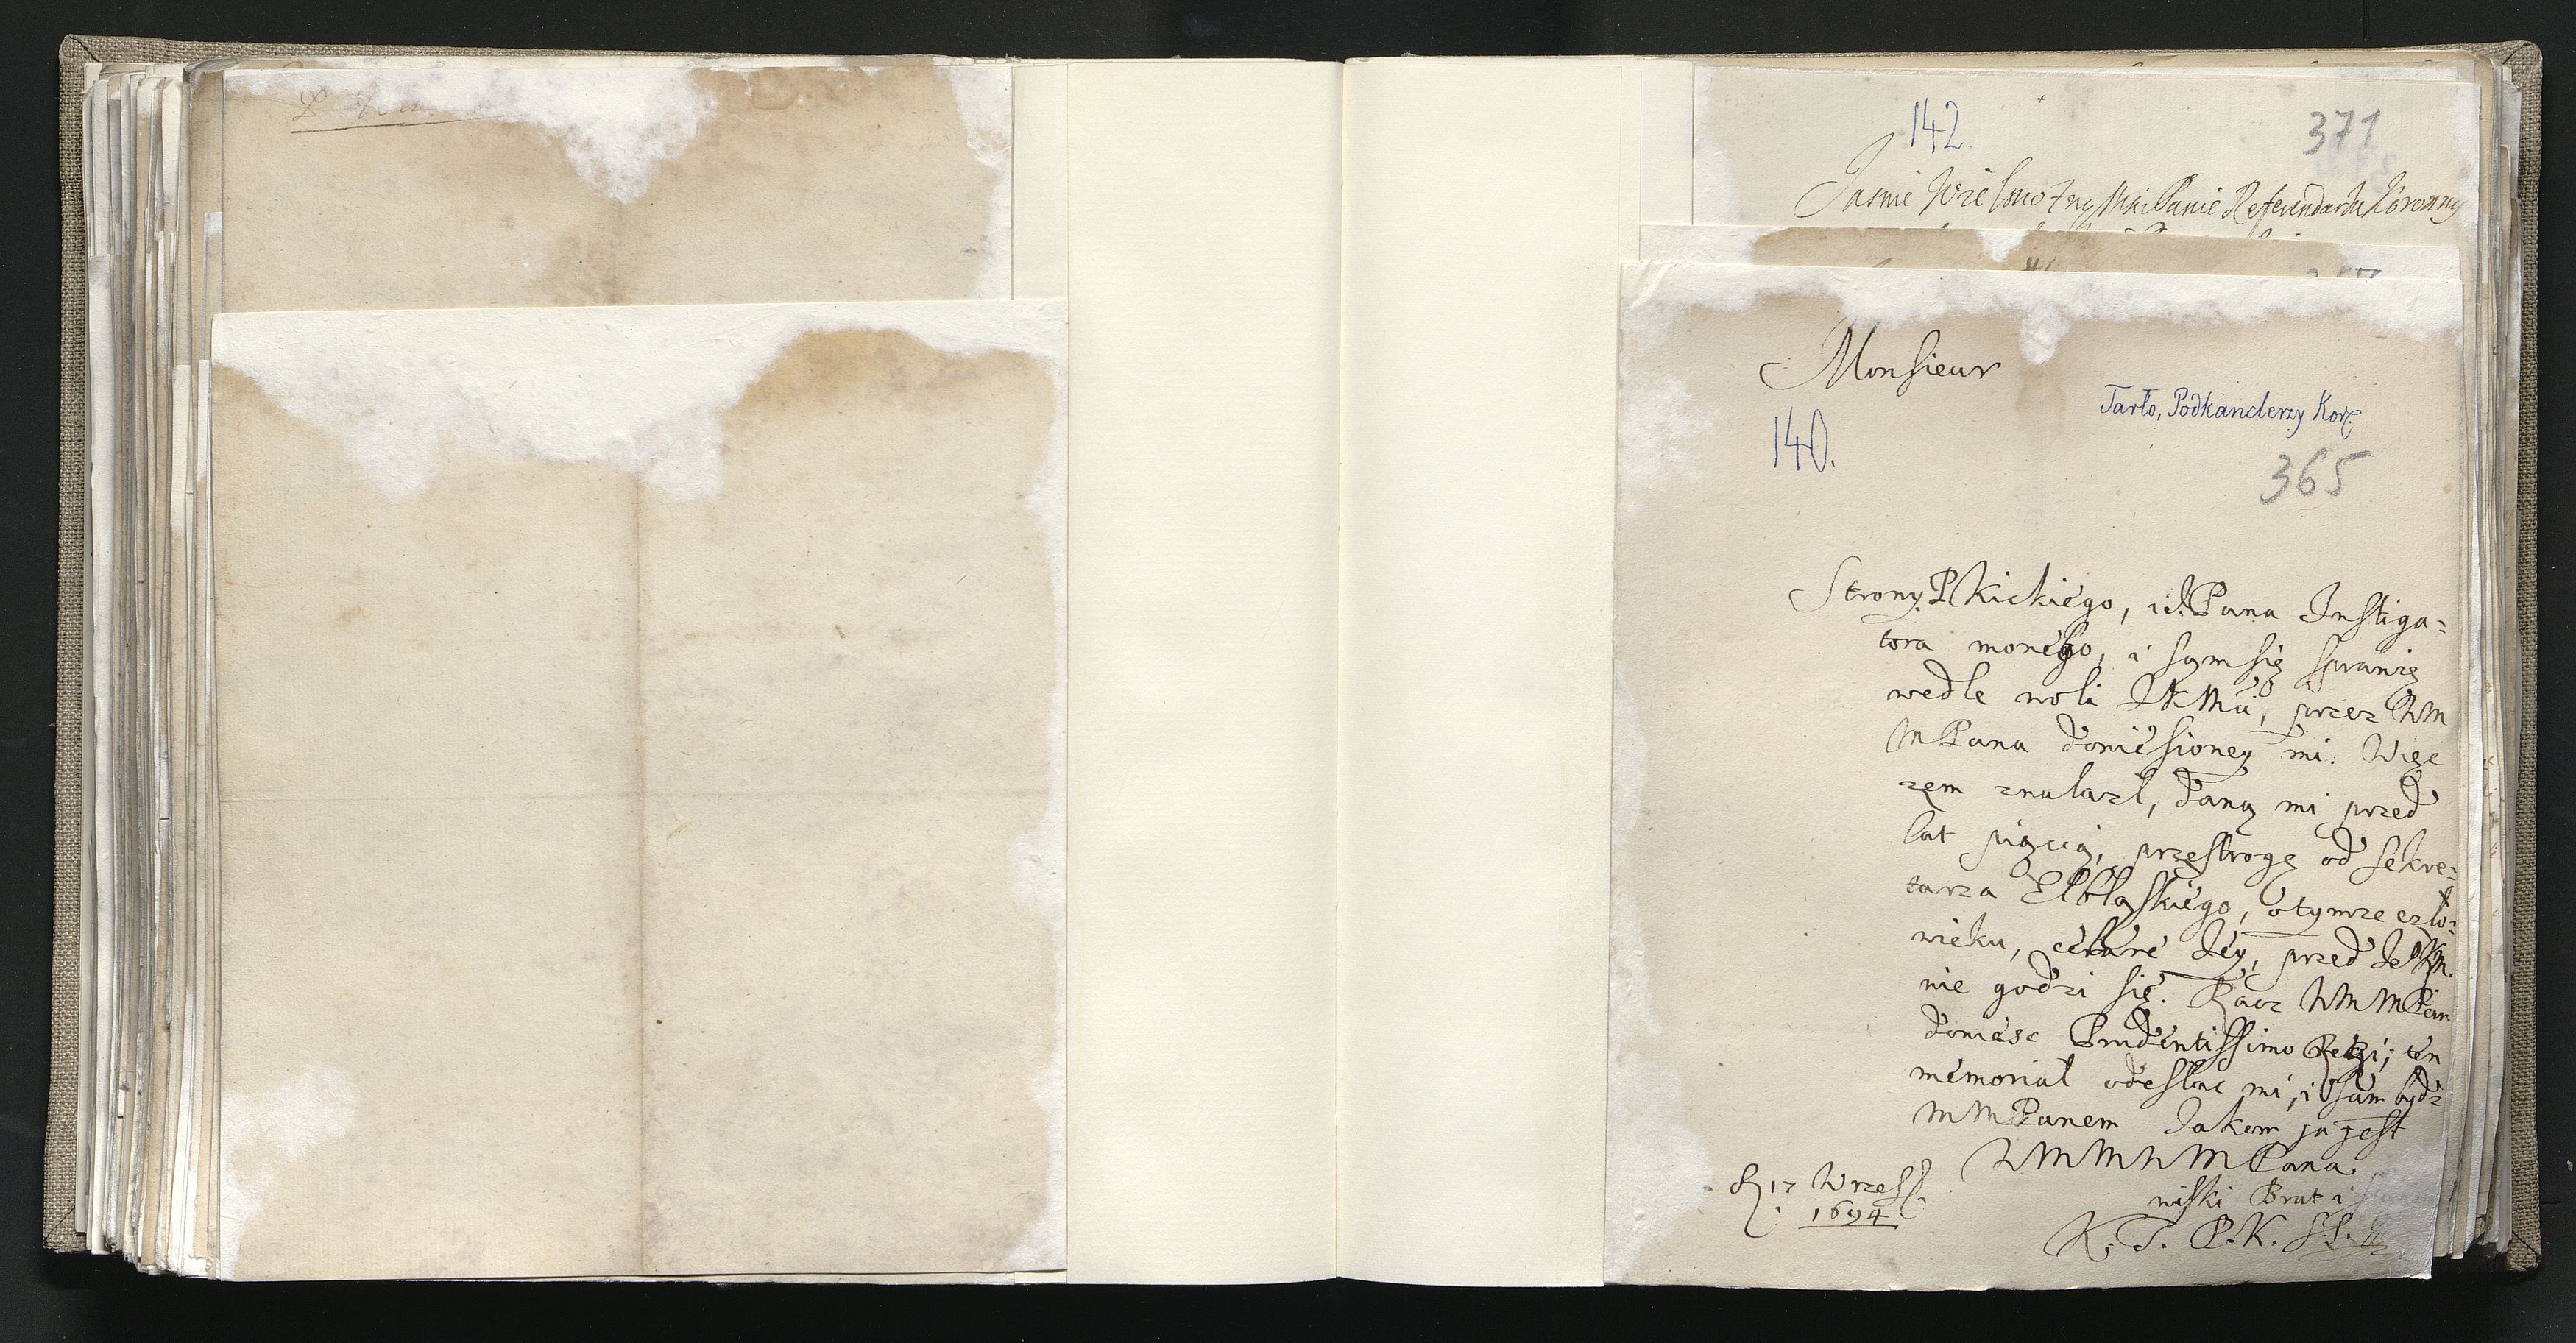 142.
371
Jasnie Wielmozny Mści Panie Referendarzu Koronny
Monsieur
Tarło, Podkanclerzy Kor.
140.
365
Strony P Kickiego, i J. Pana Instiga=
tora mowego, i sam się sprawię
wedle woli JKMci, przez WM
MPana doniesioney mi. Więc
zem znalazl, daną mi przed
lat pięcią, przestrogę od sekre=
tarza Elbląskiego, o tymze czło=
wieku, celare Jey, przed JeKM.
nie godzi się. Racz WMMPan
doniesc Prudentissimo Regi; ten
memoriał odesłac mi, i sam bydz
MMPanem Jakom ja jest
WMMWMPana
niski Brat i
K. T. P. K. S. P.
17 Wrzes
1694